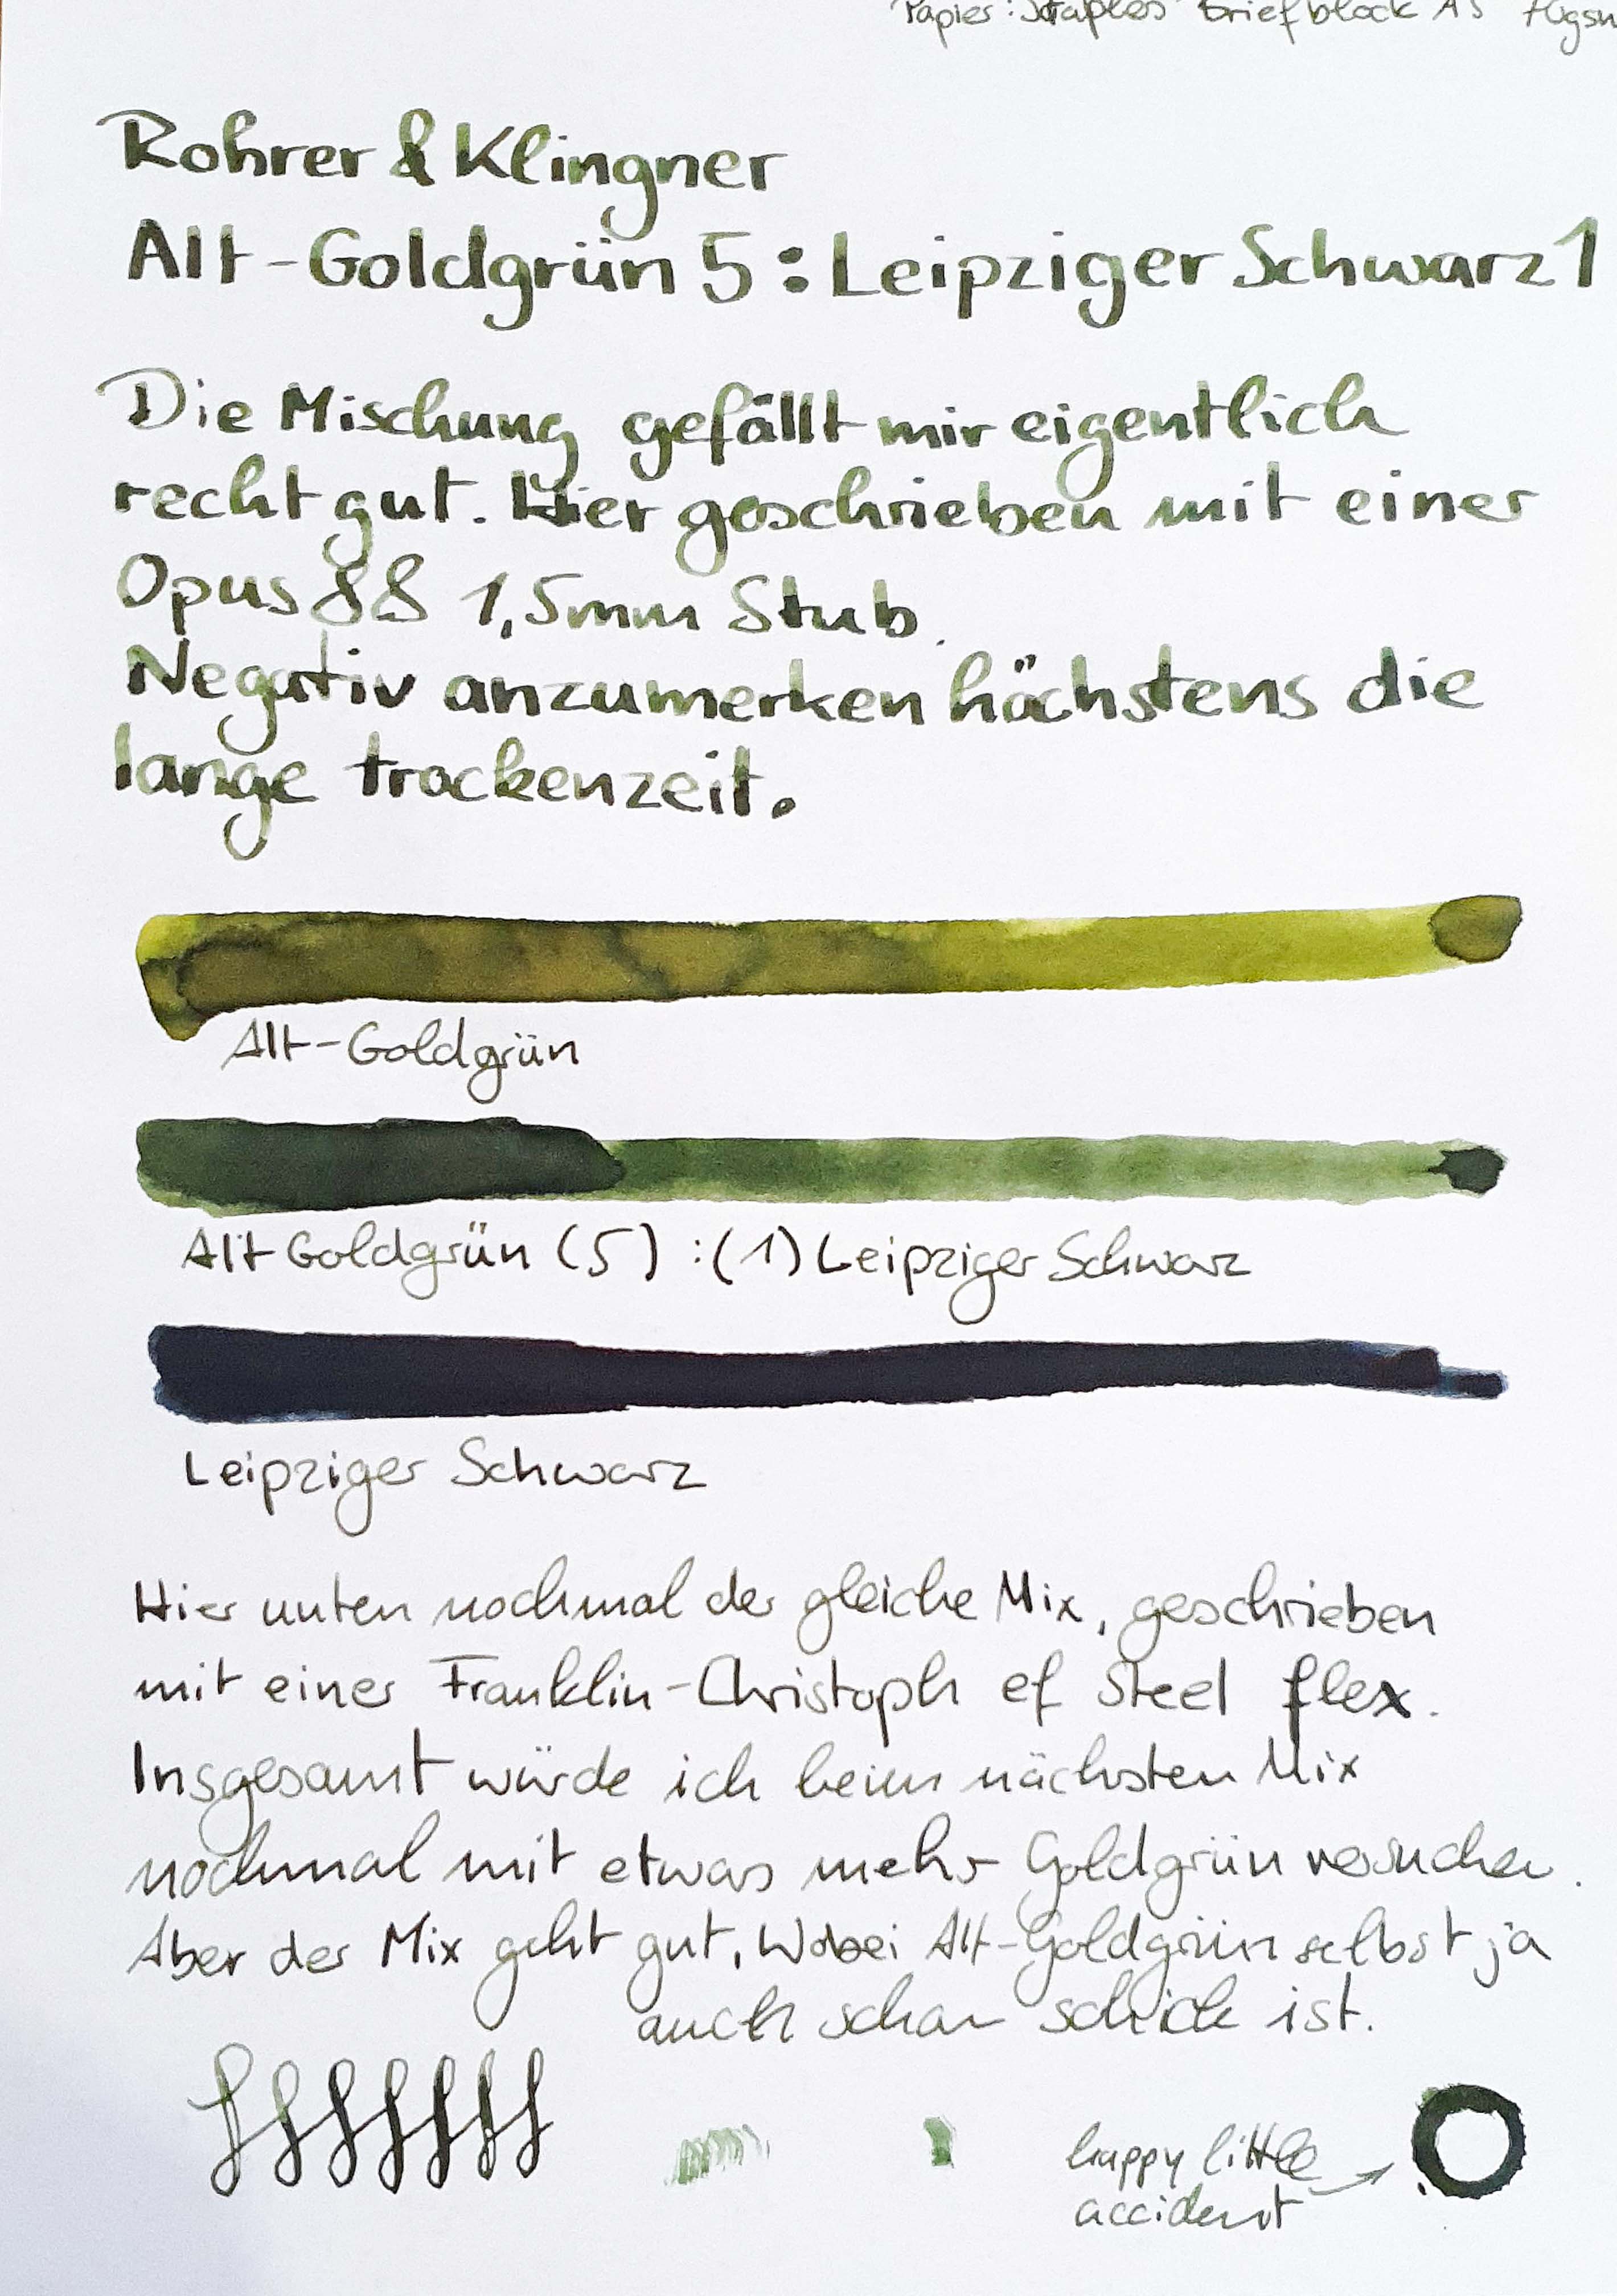 Papier: Staples Briefblock A5
Rohrer & Klingner
Alt-Goldgrün 5 : Leipziger Schwarz 1
Die Mischung gefällt mir eigentlich
recht gut. Hier geschrieben mit einer
Opus 88 1,5mm Stub.
Negativ anzumerken höchstens die
lange trockenzeit.
Alt-Goldgrün
Alt Goldgrün (5) : (1) Leipziger Schwarz
Leipziger Schwarz
Hier unten nochmal der gleiche Mix, geschrieben
mit einer Franklin-Christoph ef Steel flex.
Insgesamt würde ich beim nächsten Mix
nochmal mit etwas mehr Goldgrün versuchen.
Aber der Mix geht gut, Wobei Alt-Goldgrün selbst ja
auch schon schick ist.
happy little
accident